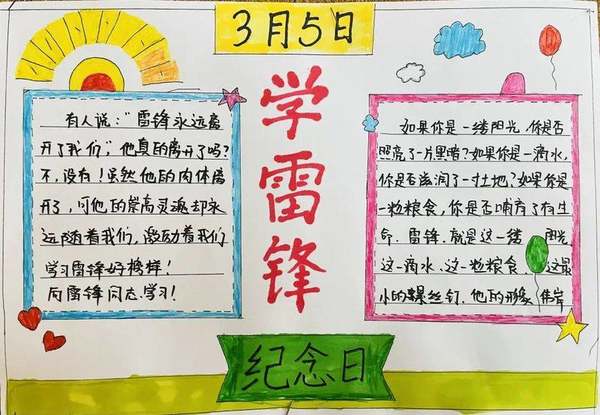 3月5日
学雷锋
纪念日
有人说：“雷锋永远离
开了我们，”他真的离开了吗？
不，没有！虽然他的肉体离
开了，可他的崇高灵魂却永
远随着我们，激励着我们
学习雷锋好榜样！
向雷锋同志学习！
如果你是一缕阳光，你是否
照亮了一片黑暗？如果你是一滴水，
你是否滋润了一寸土地？如果你是
一粒粮食，你是否哺育了有生
命．雷锋．就是这一缕 阳光
这一滴水．这一粒粮食 这最
小的螺丝钉．他的形象 伟岸